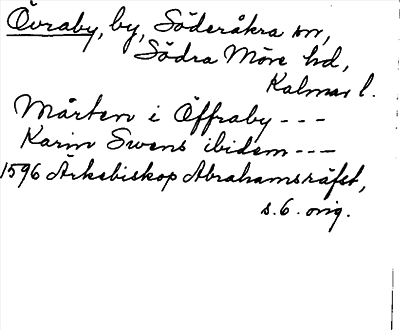 Övraby, by, Söderåkra sn,
Södra Möre hd,
Kalmar l.
Mårten i Öffraby - - -
Karin Swens ibidem - - -
1596 Ärkebiskop Abrahamsräfst,
s. 6. orig.